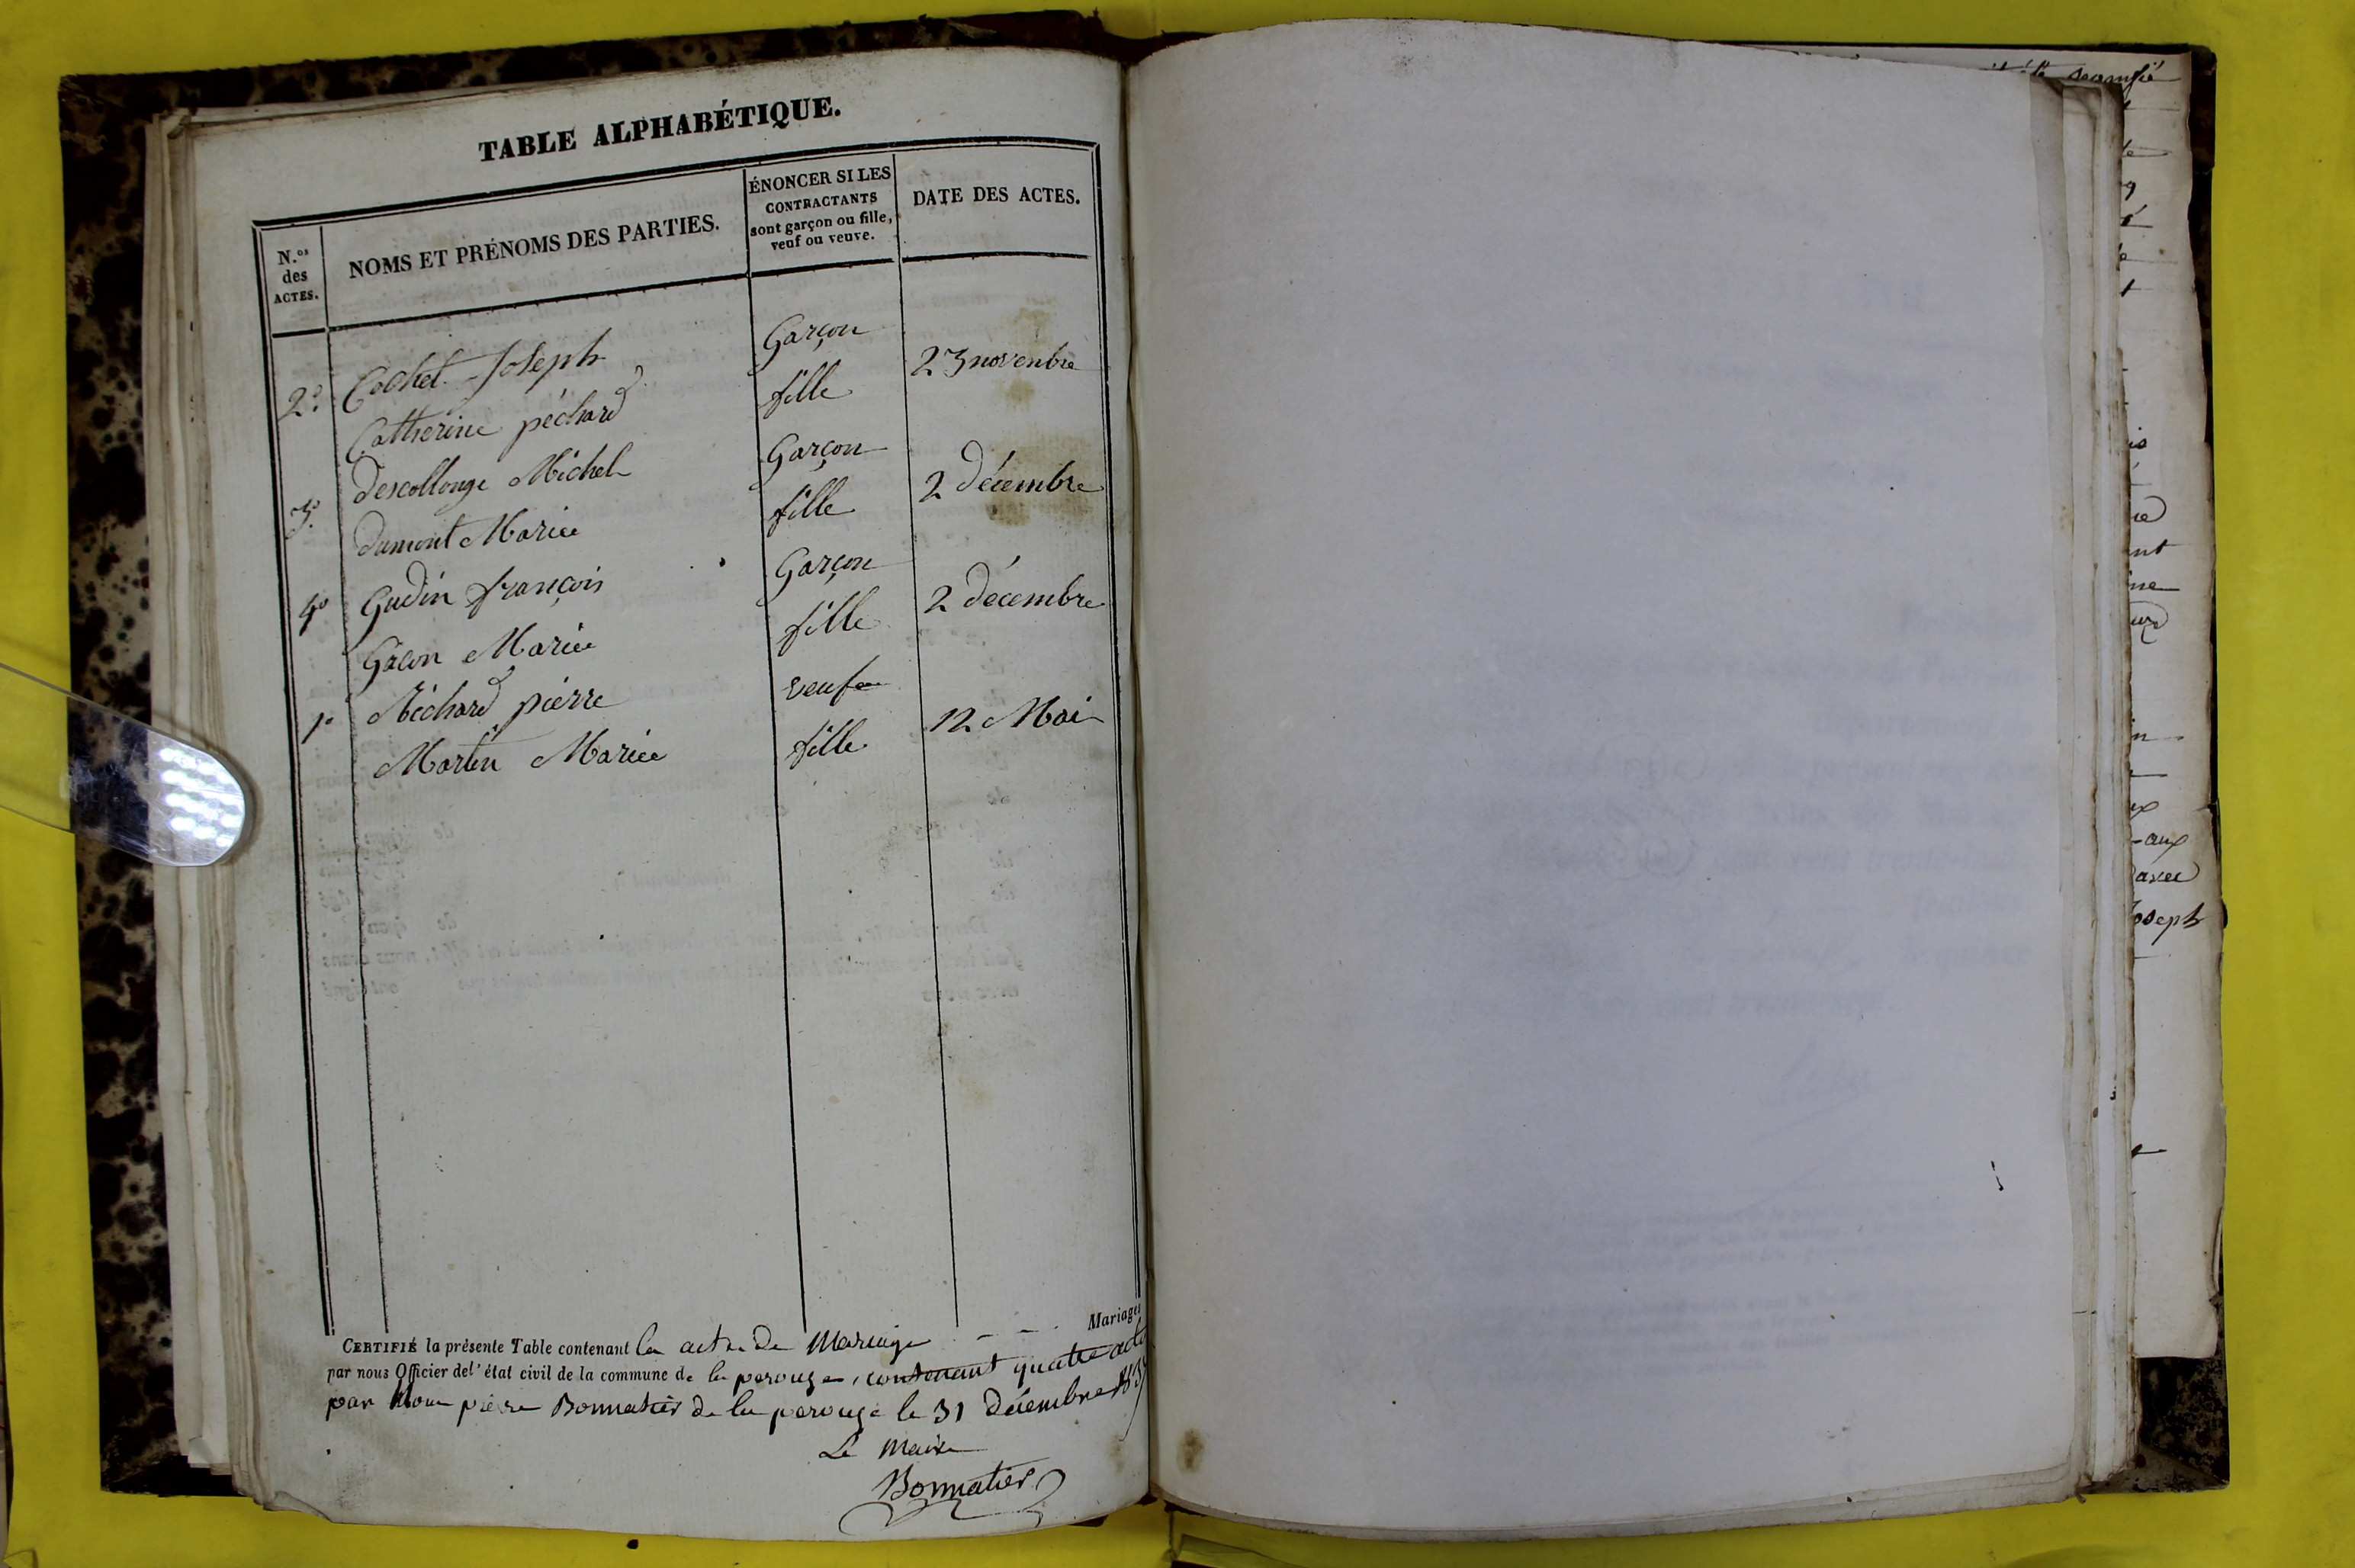 TABLE ALPHABÉTIQUE.
N.os des ACTES.
NOMS ET PRÉNOMS DES PARTIES.
ÉNONCER SI LES CONTRACTANTS sont garçon ou fille, veuf ou veuve.
DATE DES ACTES.
2º Cochet Joseph Garçon 23 novembre
Catherine péchard fille
3º descollonge Michel Garçon 2 décembre
dumont Marie fille
4º Gudin françois Garçon 2 décembre
Gacon Marie fille
1º pierre veuf 12 Mai
Martin Marie fille
Mariages
CERTIFIÉ la présente Table contenant les actes de Mariage
par nous Officier del'état civil de la commune de la perouze, contenant quatre acte
par Nous pierre Bonnatier de la perouze le 31 décembre
Le Maire
Bonnatier
aux
avec
oseph